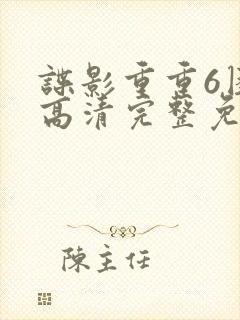 諜影重重6
高清完整免
陳主任